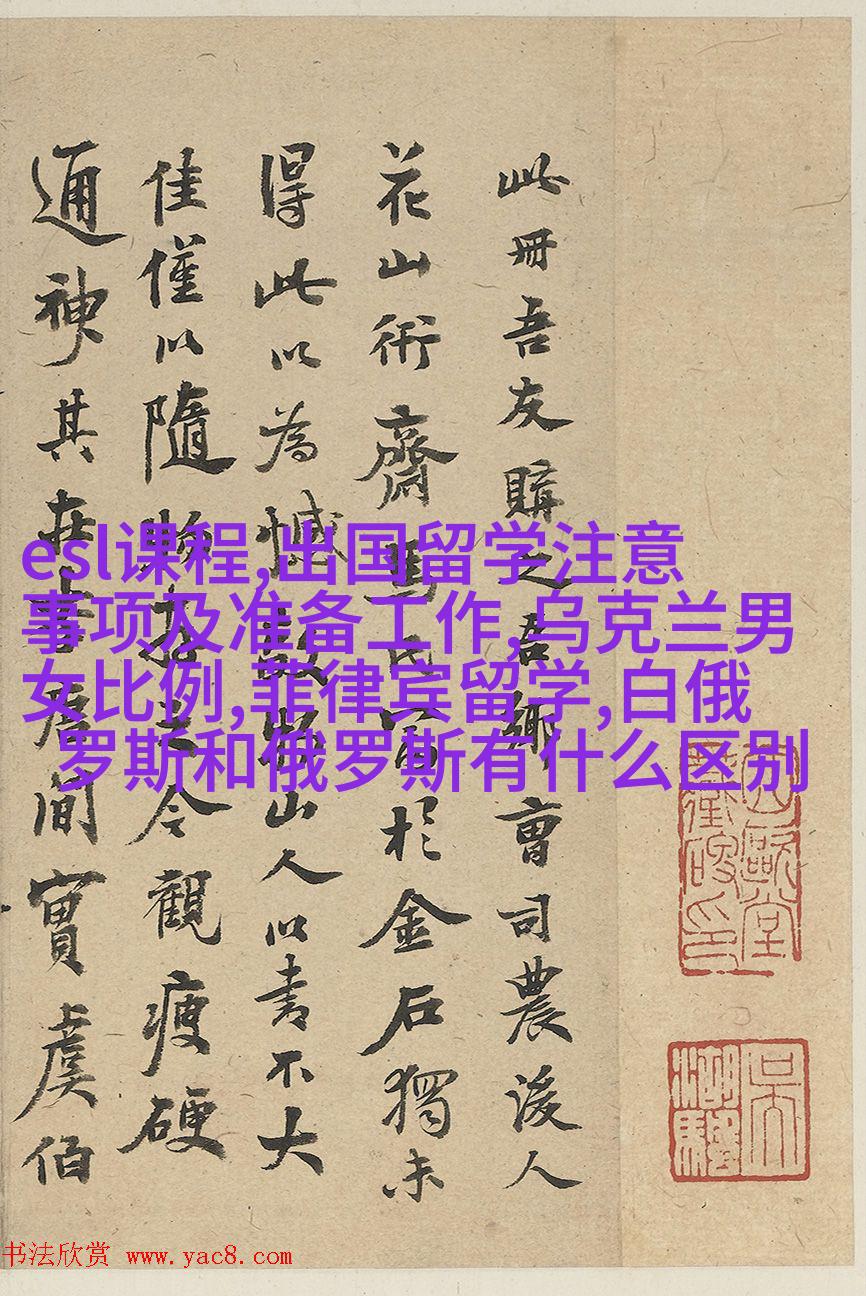 此冊吾友購之吾鄉曹司農後人
花山術齋馬氏富於金石獨未
得此以為憾數山人以書不大
佳僅以隨今觀瘦硬
通神其在唐間實虞伯
esl课程,出国留学注意
事项及准备工作,乌克兰男
女比例,菲律宾留学,白俄
罗斯和俄罗斯有什么区别
书法欣赏 www.yac8.com